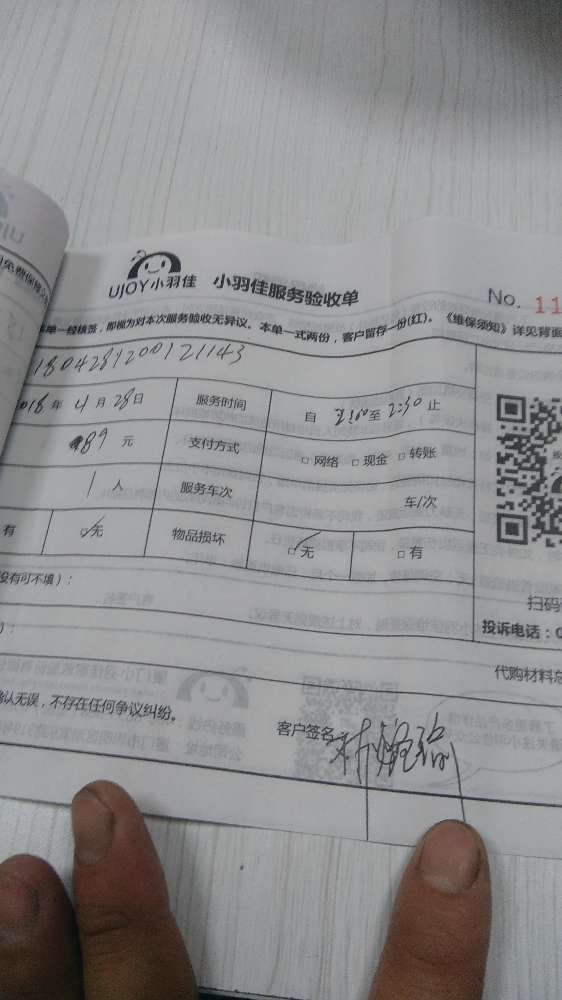 UJOY小羽佳 小羽佳服务验收单
No. 11
单一经核签，即视为对本次服务验收无异议。本单一式两份，客户留存一份(红)。《维保须知》详见背面
1804281200121143
018 年 4 月 28 日 服务时间 自 至 2:30 止
89 元 支付方式 □ 网络 □ 现金 □ 转账
1 人 服务车次 车/次
有 无 物品损坏 无 □ 有
没有可不填）：
扫码
投诉电话：0
）：
代购材料总
确认无误，不存在任何争议纠纷。
客户签名：